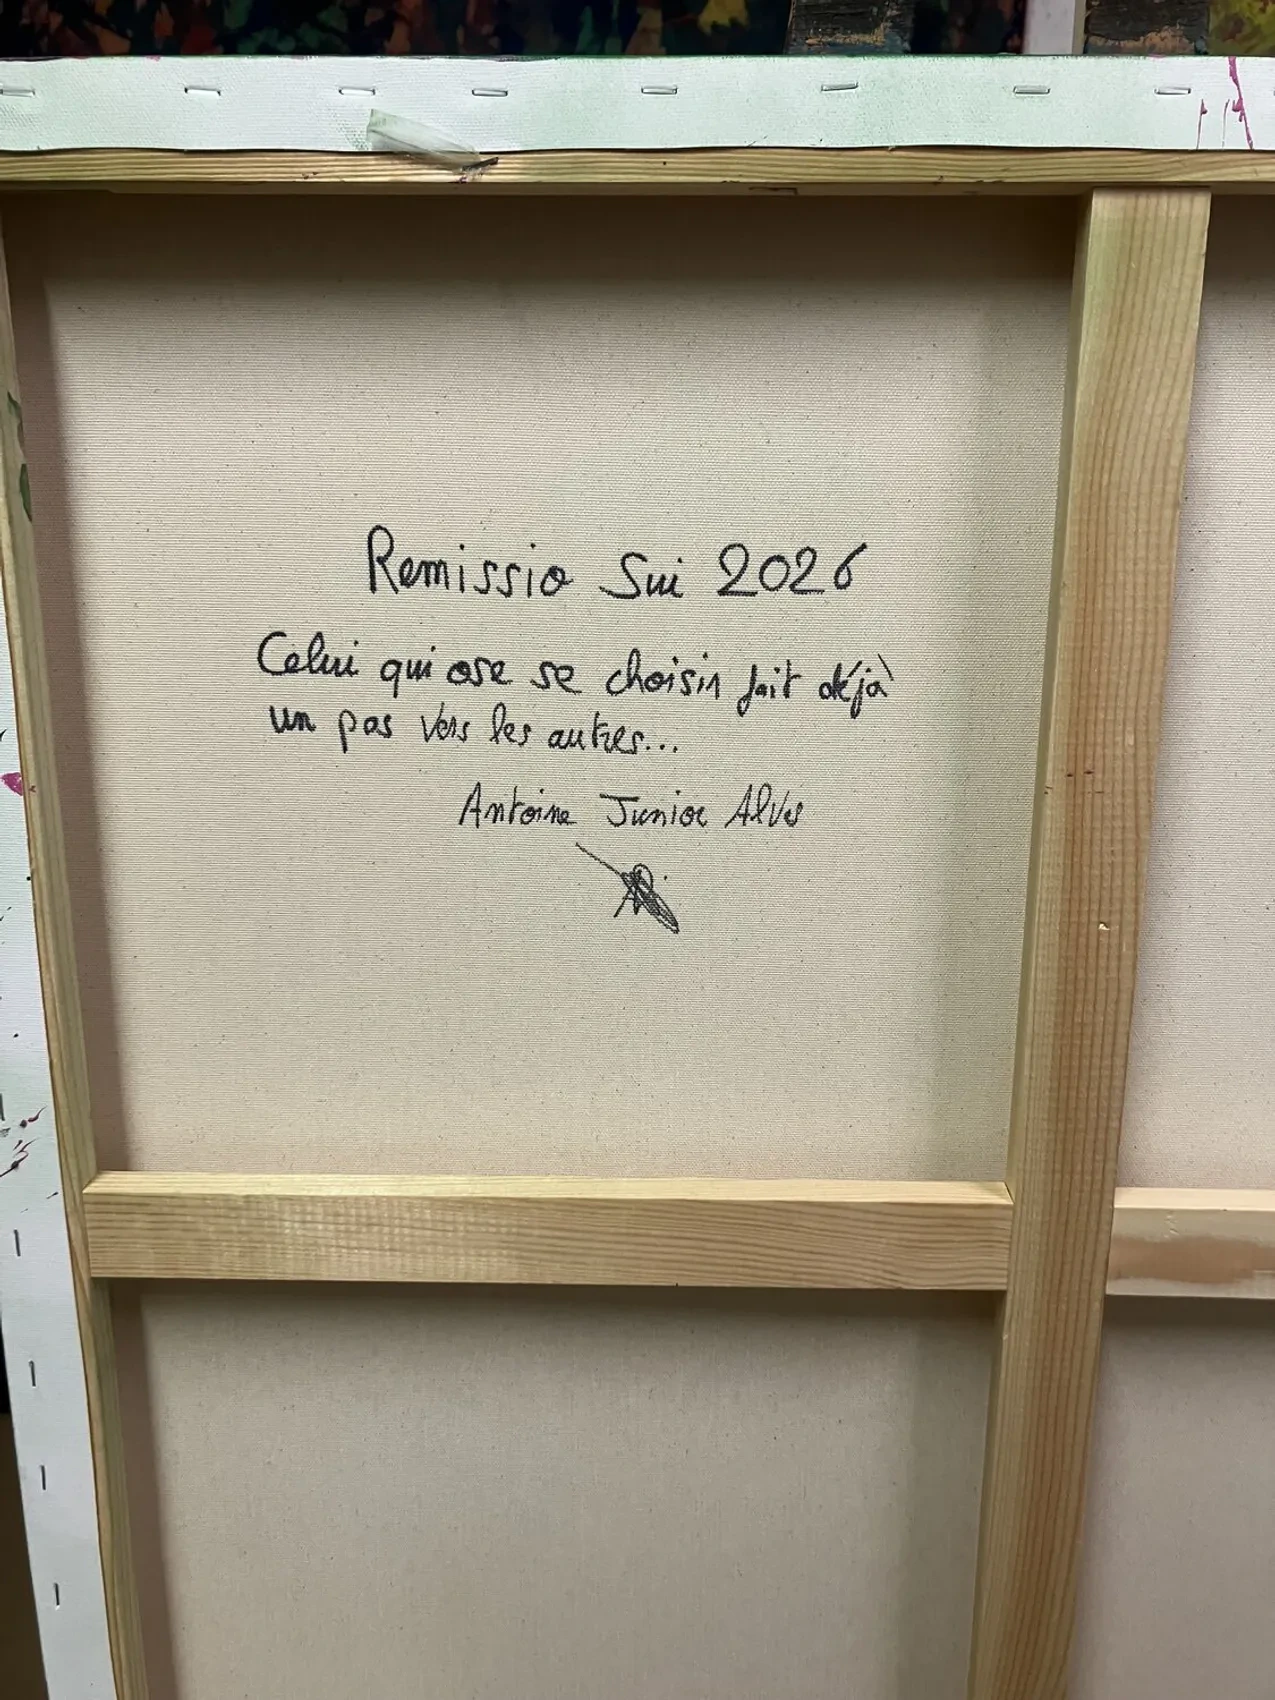 Remissio Sui 2026
Celui qui ose se choisir fait déjà
un pas vers les autres...
Antoine Junior Alves